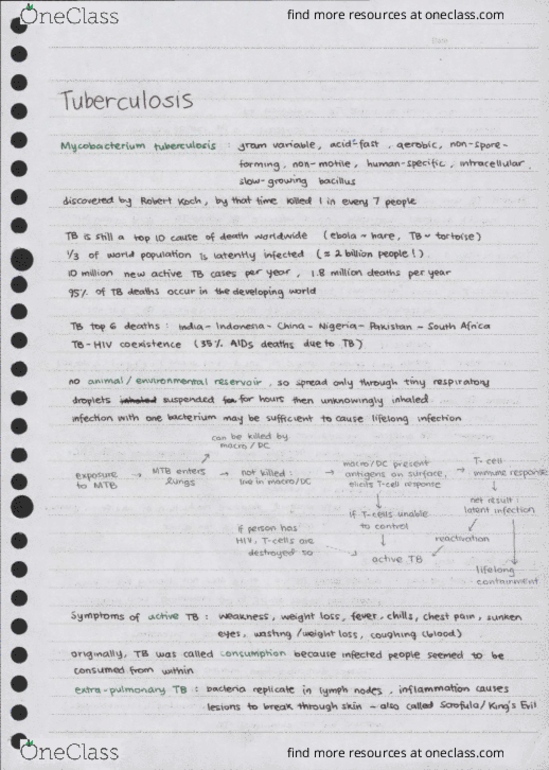 OneClass
find more resources at oneclass.com
Date
Tuberculosis
Mycobacterium tuberculosis : gram variable, acid-fast, aerobic, non-spore-
forming, non-motile, human-specific, intracellular,
slow-growing bacillus
discovered by Robert Koch, by that time killed 1 in every 7 people
TB is still a top 10 cause of death worldwide (ebola ~ hare, TB ~ tortoise)
1/3 of world population is latently infected (≈ 2 billion people!)
10 million new active TB cases per year, 1.8 million deaths per year
95% of TB deaths occur in the developing world
TB top 6 deaths : India - Indonesia - China - Nigeria - Pakistan - South Africa
TB-HIV coexistence (35% AIDs deaths due to TB)
no animal/environmental reservoir, so spread only through tiny respiratory
droplets inhaled suspended for for hours then unknowingly inhaled
infection with one bacterium may be sufficient to cause lifelong infection
can be killed by
macro/DC
exposure
to MTB
→ MTB enters
lungs
→ not killed :
live in macro/DC
→ macro/DC present
antigens on surface,
elicits T-cell response
→ T-cell
immune response
net result :
latent infection
if T-cells unable
to control
if person has
HIV, T-cells are
destroyed so
reactivation
active TB
lifelong
containment
Symptoms of active TB : weakness, weight loss, fever, chills, chest pain, sunken
eyes, wasting/weight loss, coughing (blood)
originally, TB was called consumption because infected people seemed to be
consumed from within
extra-pulmonary TB : bacteria replicate in lymph nodes, inflammation causes
lesions to break through skin - also called Scrofula/King's Evil
OneClass
find more resources at oneclass.com